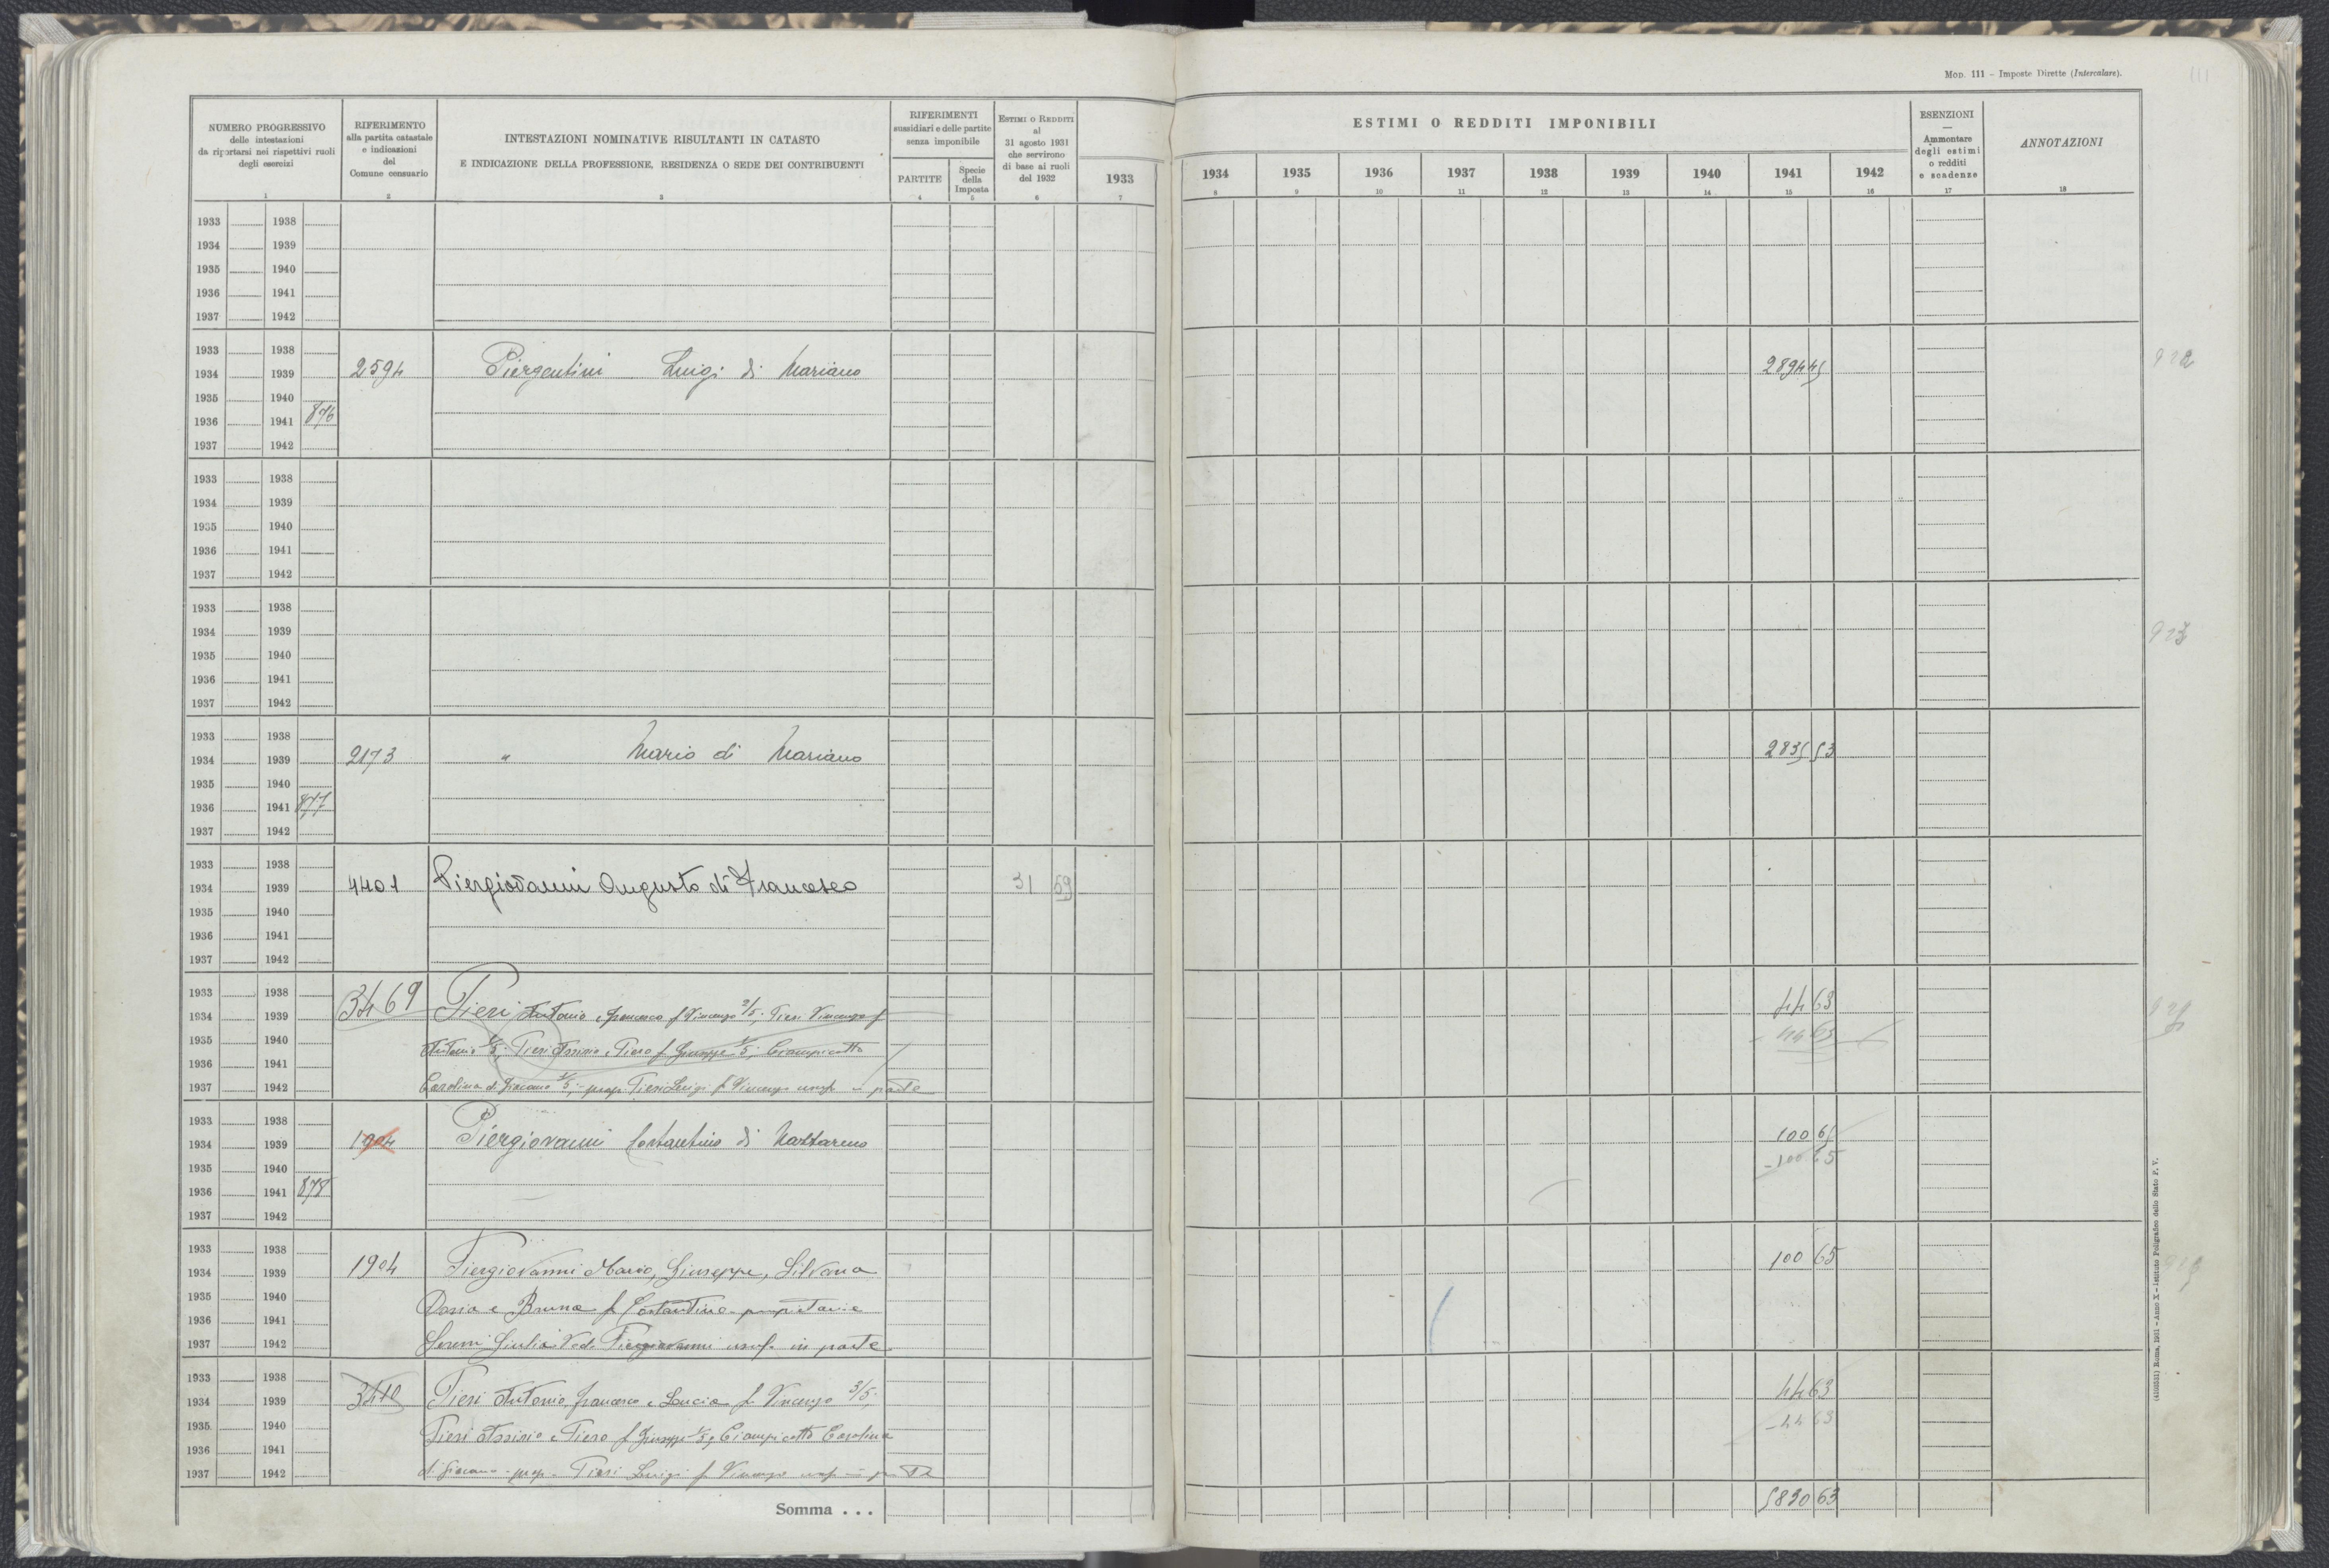 Mod. 111 – Imposte Dirette (Intercalare).
111
NUMERO PROGRESSIVO
delle intestazioni
da riportarsi nei rispettivi ruoli
degli esercizi
1
RIFERIMENTO
alla partita catastale
e indicazioni
del
Comune censuario
2
INTESTAZIONI NOMINATIVE RISULTANTI IN CATASTO
E INDICAZIONE DELLA PROFESSIONE, RESIDENZA O SEDE DEI CONTRIBUENTI
3
RIFERIMENTI
sussidiari e delle partite
senza imponibile
PARTITE
4
Specie
della
Imposta
5
ESTIMI O REDDITI
al
31 agosto 1931
che servirono
di base ai ruoli
del 1932
6
1933
7
ESTIMI O REDDITI IMPONIBILI
1934 1935 1936 1937 1938 1939 1940 1941 1942
8 9 10 11 12 13 14 15 16
ESENZIONI
—
Ammontare
degli estimi
o redditi
e scadenze
17
ANNOTAZIONI
18
1933 1938
1934 1939
1935 1940
1936 1941
1937 1942
1933 1938
1934 1939 2594 Piergentini Luigi di Mariano 2894 45
1935 1940
1936 1941 876
1937 1942
1933 1938
1934 1939
1935 1940
1936 1941
1937 1942
1933 1938
1934 1939 923
1935 1940
1936 1941
1937 1942
1933 1938
1934 1939 2173 " Mario di Mariano 2835 53
1935 1940
1936 1941 877
1937 1942
1933 1938
1934 1939 4401 Piergiovanni Augusto di Francesco 31 59
1935 1940
1936 1941
1937 1942
1933 1938
1934 1939 3469 Pieri Antonio e Francesco f Vincenzo 2/5; Pieri Vincenzo f 44 63
1935 1940 Antonio 1/5; Pieri Assisio e Piero f. Giuseppe 1/5; Ciampicotto 44 63
1936 1941
1937 1942 Carolina di Giacomo 1/5; prop. Pieri Luigi f. Vincenzo usuf. in parte
1933 1938
1934 1939 1904 Piergiovanni Costantino di Nazzareno 100 65
1935 1940 -100 65
1936 1941 878
1937 1942
1933 1938
1934 1939 1904 Piergiovanni Mario, Giuseppe, Silvana 100 65
1935 1940 Dosia e Bruna f. Costantino proprietari e
1936 1941
1937 1942 Giulia Ved. Piergiovanni usuf. in parte
1933 1938
1934 1939 3410 Pieri Antonio, Francesco e Lucia f. Vincenzo 3/5; 44 63
1935 1940 Pieri Assisio e Piero f. Giuseppe 1/5; Ciampicotto Carolina -44 63
1936 1941
1937 1942 di Giacomo prop. Pieri Luigi f. Vincenzo usuf. in parte
Somma . . . 5830 63
(4202531) Roma, 1931 – Anno X – Istituto Poligrafico dello Stato P. V.